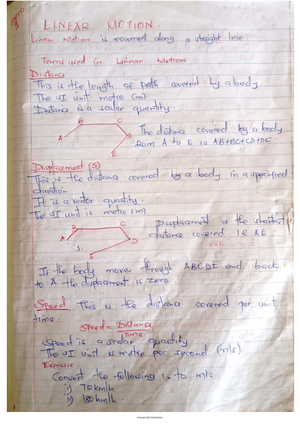 LINEAR MOTION.
Linear Motion is movement along a straight line.
Terms used in Linear Motion
Distance
This is the length of path covered by a body
The SI unit metre (m)
Distance is a scalar quantity.
A B C D E
The distance covered by a body
from A to E is AB+BC+CD+DE
Displacement (S)
This is the distance covered by a body in a specified
direction
It is a vector quantity.
The SI unit is metre (m)
A B C D E S
Displacement is the shortest
distance covered i.e AE
If the body moves through ABCDE and back
to A the displacement is zero.
Speed This is the distance covered per unit
time.
Speed = Distance
Time
Speed is a scalar quantity
The SI unit is metre per second (m/s)
Exercise
Convert the following to m/s.
i) 72km/h
ii) 180km/h
Scanned with CamScanner